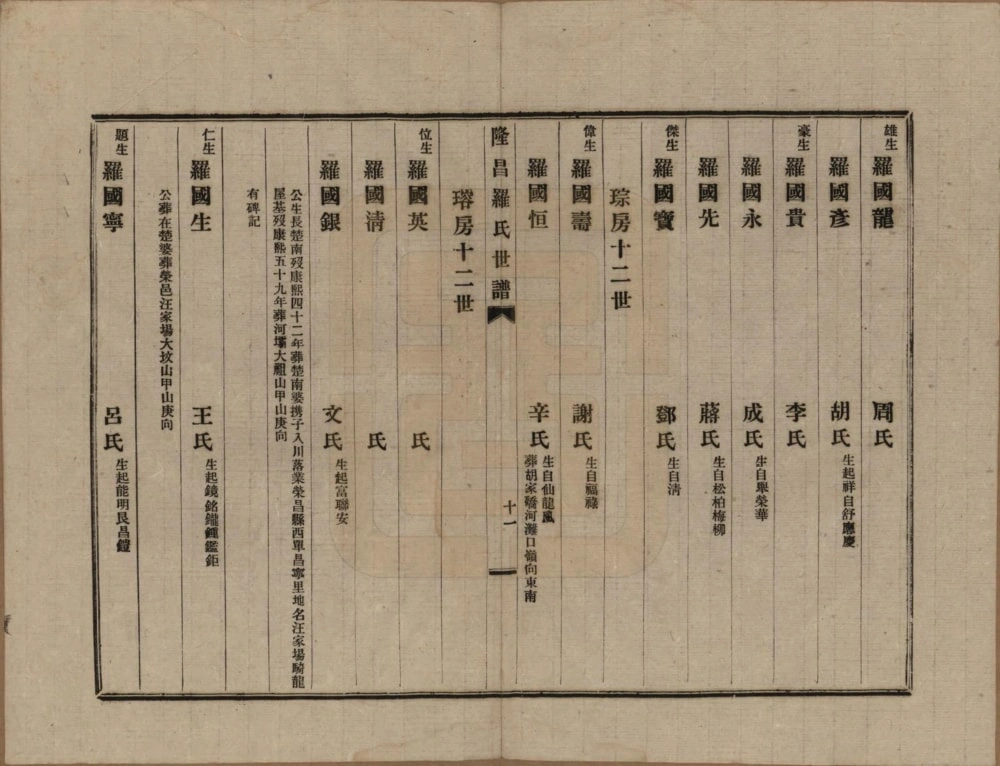 雄生 羅國龍 周氏
羅國彥 胡氏 生起祥自舒應慶
豪生 羅國貴 李氏
羅國永 成氏 生自舉榮華
羅國先 蔣氏 生自松柏梅柳
傑生 羅國寶 鄧氏 生自清
琮房十二世
偉生 羅國壽 謝氏 生自福祿
羅國恒 辛氏 生自仙龍風
葬胡家橋河灘口嶺向東南
隆昌羅氏世譜 十一
璿房十二世
位生 羅國英 氏
羅國清 氏
羅國銀 文氏 生起富聯安
公生長楚南歿康熙四十二年葬楚南婆携子入川落業榮昌縣西單昌寧里地名汪家場騎龍
屋基歿康熙五十九年葬河壩大祖山甲山庚向
有碑記
仁生 羅國生 王氏 生起鏡銘鑨鍾鑑鉅
公葬在楚婆葬榮邑汪家場大坟山甲山庚向
題生 羅國寧 呂氏 生起能明艮昌鐘